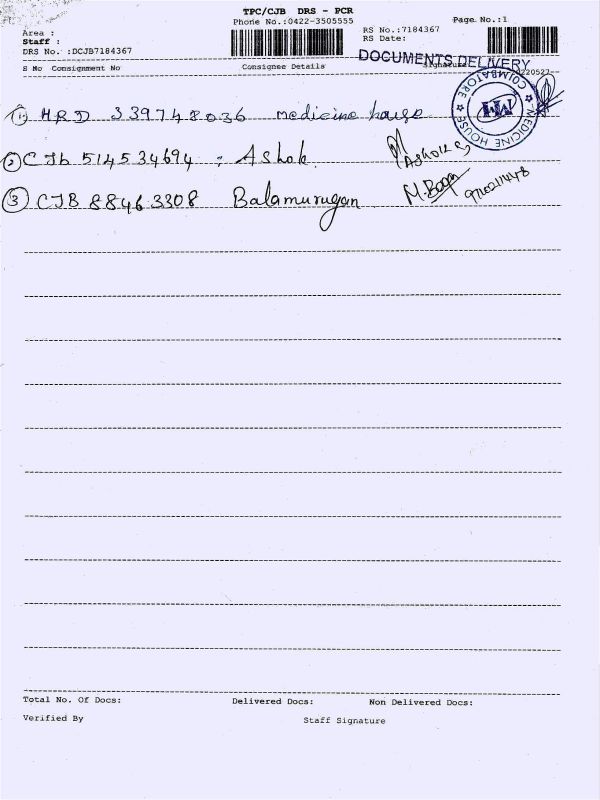 TPC/CJB DRS - PCR
Phone No.:0422-3505555
Page No.:1
Area :
Staff :
DRS No. :DCJB7184367
RS No.:7184367
RS Date:
DOCUMENTS DELIVERY
S No Consignment No Consignee Details Signature
MEDICINE HOUSE ☆ COIMBATORE ☆
① HRD 339748036 medicine house
② CJb 514534694 : Ashok
③ CJB 88463308 Balamurugan
Total No. Of Docs: Delivered Docs: Non Delivered Docs:
Verified By Staff Signature